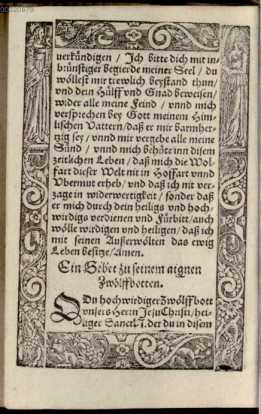 verkündigen / Ich bitte dich mit in-
brünstiger begierde meiner Seel / du
wöllest mir trewlich beystand thun/
vnd dein Hülff vnd Gnad beweisen/
wider alle meine Feind / vnnd mich
versprechen bey Gott meinem Him-
lischen Vattern/daß er mir barmher-
tzig sey / vnnd mir vergebe alle meine
Sünd / vnnd mich behöt inn disem
zeitlichen Leben / daß mich die Wol-
fart diser Welt nit in Hoffart vnnd
Vbermut erheb/ vnd daß ich nit ver-
zage in widerwertigkeit / sonder daß
er mich durch dein heiligs vnd hoch-
wirdigs verdienen vnd Fürbitt/auch
wölle wirdigen vnd heiligen/ daß ich
mit seinen Außerwölten das ewig
Leben besitze/Amen.
Ein Gebet zu seinem aignen
Zwölffbotten.
O Du hochwirdiger Zwölffbott
vnsers Herrn Jesu Christi/hei-
liger Sanct N. der du in disem